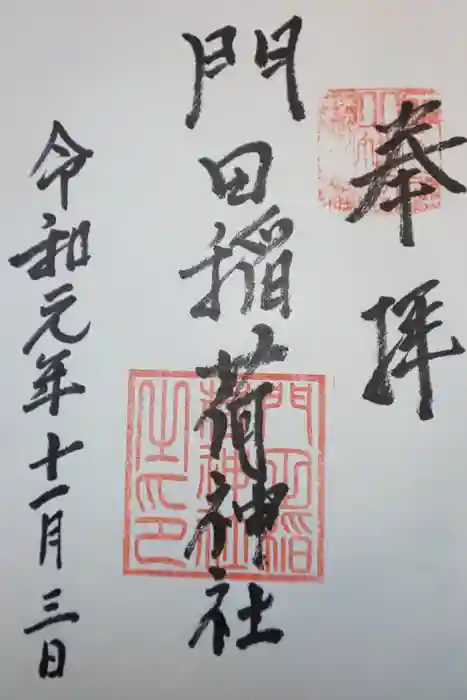 奉拝
門田稲荷神社
令和元年十一月三日
門田稲
荷神社
之印